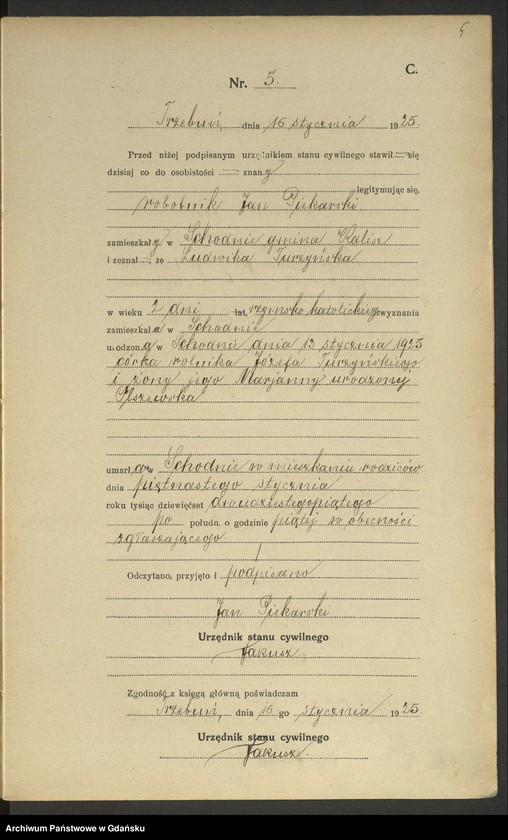 5
C.
Nr. 5.
Trzebuń, dnia 16 stycznia 1925.
Przed niżej podpisanym urzędnikiem stanu cywilnego stawił się
dzisiaj co do osobistości znany
legitymując się,
robotnik Jan Piekarski
zamieszkały w Schodnie gmina Kalisz
i zeznał, że Ludwika Turzyńska
w wieku 2 dni lat, rzymsko katolickiego wyznania
zamieszkała w Schodnie
urodzona w Schodnie dnia 13 stycznia 1925
córka rolnika Józefa Turzyńskiego
i żony jego Marjanny urodzonej
Olszewska
umarła w Schodnie w mieszkaniu rodziców
dnia piętnastego stycznia
roku tysiąc dziewięćset dwudziestegopiątego
po połudn. o godzinie piątej w obecności
zgłaszającego.
Odczytano, przyjęto i podpisano
Jan Piekarski
Urzędnik stanu cywilnego
Jakusz.
Zgodność z księgą główną poświadczam
Trzebuń, dnia 16 go stycznia 1925.
Urzędnik stanu cywilnego
Jakusz.
Archiwum Państwowe w Gdańsku